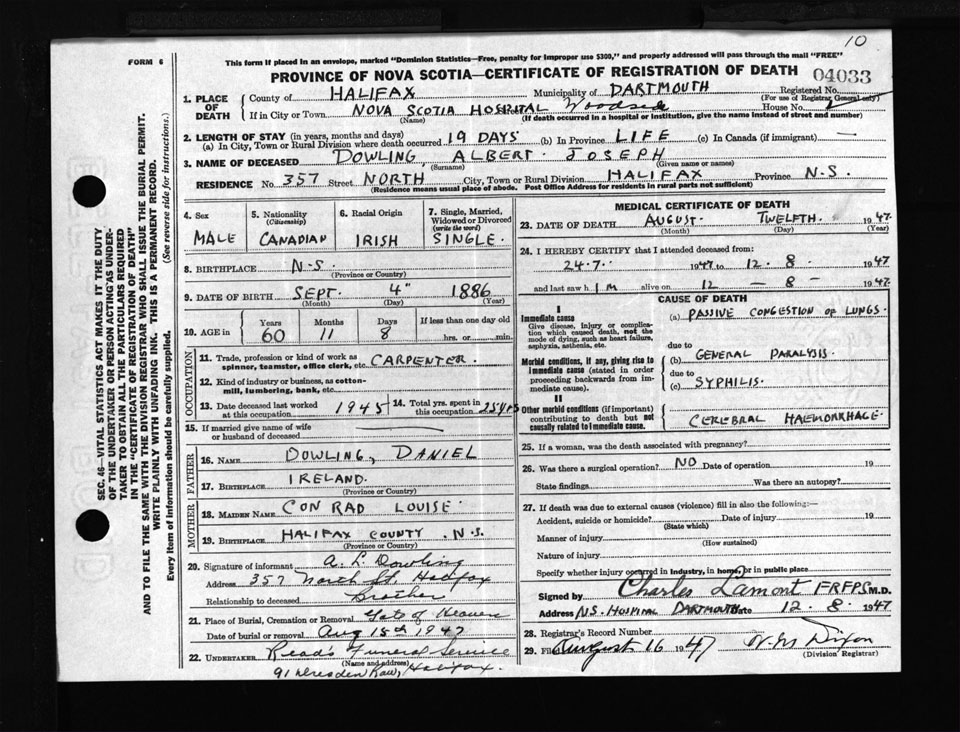 10
FORM 6
This form if placed in an envelope, marked "Dominion Statistics—Free, penalty for improper use $300," and properly addressed will pass through the mail "FREE"
PROVINCE OF NOVA SCOTIA—CERTIFICATE OF REGISTRATION OF DEATH
04033
1. PLACE OF DEATH
County of HALIFAX Municipality of DARTMOUTH Registered No.
(For use of Registrar General only)
If in City or Town NOVA SCOTIA HOSPITAL Woodside House No.
(Name) (If death occurred in a hospital or institution, give the name instead of street and number)
2. LENGTH OF STAY (in years, months and days)
(a) In City, Town or Rural Division where death occurred 19 DAYS (b) In Province LIFE (c) In Canada (if immigrant) —
3. NAME OF DECEASED DOWLING, ALBERT JOSEPH
(Surname) (Given name or names)
RESIDENCE No. 357 Street NORTH City, Town or Rural Division HALIFAX Province N.S.
(Residence means usual place of abode. Post Office Address for residents in rural parts not sufficient)
4. Sex
MALE
5. Nationality (Citizenship)
CANADIAN
6. Racial Origin
IRISH
7. Single, Married, Widowed or Divorced (write the word)
SINGLE.
8. BIRTHPLACE N.S.
(Province or Country)
9. DATE OF BIRTH SEPT. 4" 1886
(Month) (Day) (Year)
10. AGE in
Years Months Days If less than one day old
60 11 8 hrs. or min.
OCCUPATION
11. Trade, profession or kind of work as spinner, teamster, office clerk, etc. CARPENTER.
12. Kind of industry or business, as cotton-mill, lumbering, bank, etc.
13. Date deceased last worked at this occupation 1945
14. Total yrs. spent in this occupation 25 yrs
15. If married give name of wife or husband of deceased —
FATHER
16. NAME DOWLING, DANIEL
17. BIRTHPLACE IRELAND.
(Province or Country)
MOTHER
18. MAIDEN NAME CONRAD LOUISE.
19. BIRTHPLACE HALIFAX COUNTY. N.S.
(Province or Country)
20. Signature of informant A. L. Dowling
Address 357 North St. Halifax
Relationship to deceased Brother
21. Place of Burial, Cremation or Removal Gate of Heaven
Date of burial or removal Aug 15th 1947
22. UNDERTAKER Read's Funeral Service
(Name and address)
91 Dresden Row, Halifax.
MEDICAL CERTIFICATE OF DEATH
23. DATE OF DEATH AUGUST. TWELFTH. 1947.
(Month) (Day) (Year)
24. I HEREBY CERTIFY that I attended deceased from:
24.7. 1947 to 12.8. 1947
and last saw h IM alive on 12 — 8 — 1947.
CAUSE OF DEATH
I
Immediate cause
Give disease, injury or complication which caused death, not the mode of dying, such as heart failure, asphyxia, asthenia, etc.
(a) PASSIVE CONGESTION OF LUNGS.
due to
Morbid conditions, if any, giving rise to immediate cause (stated in order proceeding backwards from immediate cause).
(b) GENERAL PARALYSIS.
due to
(c) SYPHILIS.
II
Other morbid conditions (if important) contributing to death but not causally related to immediate cause.
CEREBRAL HAEMORRHAGE.
25. If a woman, was the death associated with pregnancy?
26. Was there a surgical operation? NO Date of operation 19
State findings Was there an autopsy?
27. If death was due to external causes (violence) fill in also the following:—
Accident, suicide or homicide? Date of injury 19
(State which)
Manner of injury
(How sustained)
Nature of injury
Specify whether injury occurred in industry, in home, or in public place
Signed by Charles Lamont FRFPS M.D.
Address N.S. HOSPITAL DARTMOUTH Date 12.8. 1947
28. Registrar's Record Number
29. Filed August 16 1947 W. M. Dixon
(Division Registrar)
SEC. 46—VITAL STATISTICS ACT MAKES IT THE DUTY
OF THE UNDERTAKER OR PERSON ACTING AS UNDER-
TAKER TO OBTAIN ALL THE PARTICULARS REQUIRED
IN THE "CERTIFICATE OF REGISTRATION OF DEATH"
AND TO FILE THE SAME WITH THE DIVISION REGISTRAR WHO SHALL ISSUE THE BURIAL PERMIT.
WRITE PLAINLY WITH UNFADING INK. THIS IS A PERMANENT RECORD.
Every item of information should be carefully supplied. (See reverse side for instructions.)